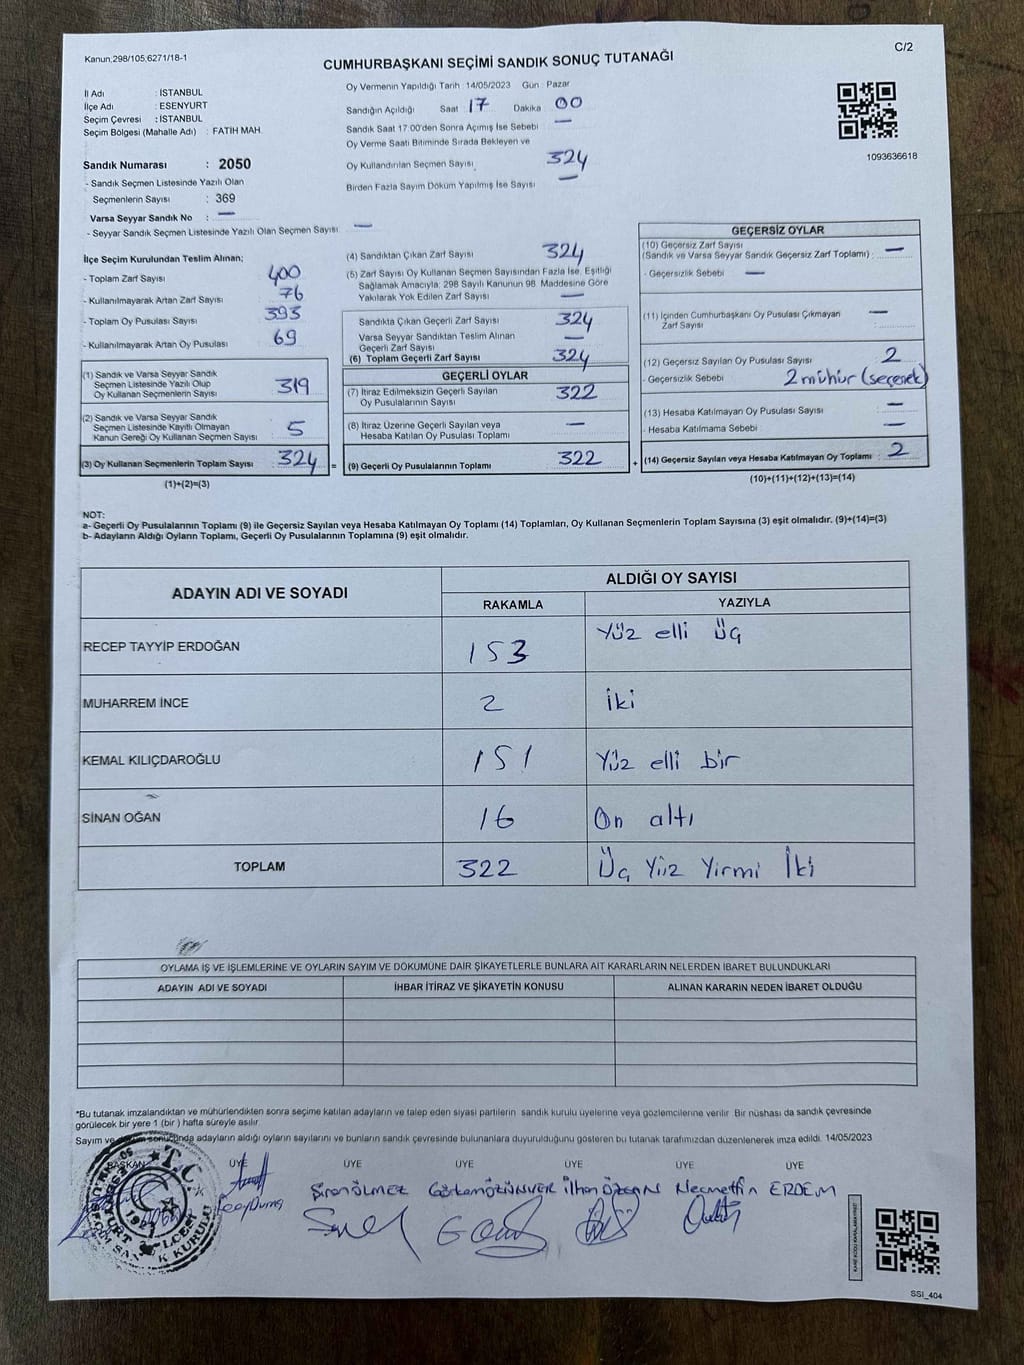 Kanun,298/105;6271/18-1
C/2
CUMHURBAŞKANI SEÇİMİ SANDIK SONUÇ TUTANAĞI
İl Adı : İSTANBUL
İlçe Adı : ESENYURT
Seçim Çevresi : İSTANBUL
Seçim Bölgesi (Mahalle Adı) : FATİH MAH.
Sandık Numarası : 2050
- Sandık Seçmen Listesinde Yazılı Olan
Seçmenlerin Sayısı : 369
Varsa Seyyar Sandık No : —
- Seyyar Sandık Seçmen Listesinde Yazılı Olan Seçmen Sayısı —
Oy Vermenin Yapıldığı Tarih 14/05/2023 Gün : Pazar
Sandığın Açıldığı Saat 17 Dakika 00
Sandık Saat 17:00'den Sonra Açımış İse Sebebi —
Oy Verme Saati Bitiminde Sırada Bekleyen ve
Oy Kullandırılan Seçmen Sayısı 324
Birden Fazla Sayım Döküm Yapılmış İse Sayısı —
1093636618
İlçe Seçim Kurulundan Teslim Alınan;
- Toplam Zarf Sayısı : 400
- Kullanılmayarak Artan Zarf Sayısı : 76
- Toplam Oy Pusulası Sayısı : 393
- Kullanılmayarak Artan Oy Pusulası : 69
(1) Sandık ve Varsa Seyyar Sandık
Seçmen Listesinde Yazılı Olup
Oy Kullanan Seçmenlerin Sayısı : 319
(2) Sandık ve Varsa Seyyar Sandık
Seçmen Listesinde Kayıtlı Olmayan
Kanun Gereği Oy Kullanan Seçmen Sayısı : 5
(3) Oy Kullanan Seçmenlerin Toplam Sayısı : 324 =
(1)+(2)=(3)
(4) Sandıktan Çıkan Zarf Sayısı 324
(5) Zarf Sayısı Oy Kullanan Seçmen Sayısından Fazla İse, Eşitliği
Sağlamak Amacıyla; 298 Sayılı Kanunun 98. Maddesine Göre
Yakılarak Yok Edilen Zarf Sayısı —
Sandıkta Çıkan Geçerli Zarf Sayısı 324
Varsa Seyyar Sandıktan Teslim Alınan
Geçerli Zarf Sayısı —
(6) Toplam Geçerli Zarf Sayısı 324
GEÇERLİ OYLAR
(7) İtiraz Edilmeksizin Geçerli Sayılan
Oy Pusulalarının Sayısı 322
(8) İtiraz Üzerine Geçerli Sayılan veya
Hesaba Katılan Oy Pusulası Toplamı —
(9) Geçerli Oy Pusulalarının Toplamı 322 +
GEÇERSİZ OYLAR
(10) Geçersiz Zarf Sayısı
(Sandık ve Varsa Seyyar Sandık Geçersiz Zarf Toplamı) : —
- Geçersizlik Sebebi —
(11) İçinden Cumhurbaşkanı Oy Pusulası Çıkmayan
Zarf Sayısı : —
(12) Geçersiz Sayılan Oy Pusulası Sayısı : 2
- Geçersizlik Sebebi 2 mühür (seçenek)
(13) Hesaba Katılmayan Oy Pusulası Sayısı : —
- Hesaba Katılmama Sebebi —
(14) Geçersiz Sayılan veya Hesaba Katılmayan Oy Toplamı : 2
(10)+(11)+(12)+(13)=(14)
NOT:
a- Geçerli Oy Pusulalarının Toplamı (9) ile Geçersiz Sayılan veya Hesaba Katılmayan Oy Toplamı (14) Toplamları, Oy Kullanan Seçmenlerin Toplam Sayısına (3) eşit olmalıdır. (9)+(14)=(3)
b- Adayların Aldığı Oyların Toplamı, Geçerli Oy Pusulalarının Toplamına (9) eşit olmalıdır.
ADAYIN ADI VE SOYADI
ALDIĞI OY SAYISI
RAKAMLA YAZIYLA
RECEP TAYYİP ERDOĞAN 153 Yüz elli üç
MUHARREM İNCE 2 İki
KEMAL KILIÇDAROĞLU 151 Yüz elli bir
SİNAN OĞAN 16 On altı
TOPLAM 322 Üç Yüz Yirmi İki
OYLAMA İŞ VE İŞLEMLERİNE VE OYLARIN SAYIM VE DÖKÜMÜNE DAİR ŞİKAYETLERLE BUNLARA AİT KARARLARIN NELERDEN İBARET BULUNDUKLARI
ADAYIN ADI VE SOYADI İHBAR İTİRAZ VE ŞİKAYETİN KONUSU ALINAN KARARIN NEDEN İBARET OLDUĞU
*Bu tutanak imzalandıktan ve mühürlendikten sonra seçime katılan adayların ve talep eden siyasi partilerin sandık kurulu üyelerine veya gözlemcilerine verilir. Bir nüshası da sandık çevresinde
görülecek bir yere 1 (bir) hafta süreyle asılır.
Sayım ve sonucunda adayların aldığı oyların sayılarını ve bunların sandık çevresinde bulunanlara duyurulduğunu gösteren bu tutanak tarafımızdan düzenlenerek imza edildi. 14/05/2023
BAŞKAN ÜYE ÜYE ÜYE ÜYE ÜYE ÜYE
ÖLMEZ Görkem ÖZÜNVER İlhan ÖZCAN Necmettin ERDEM
T.C.
SSİ_404